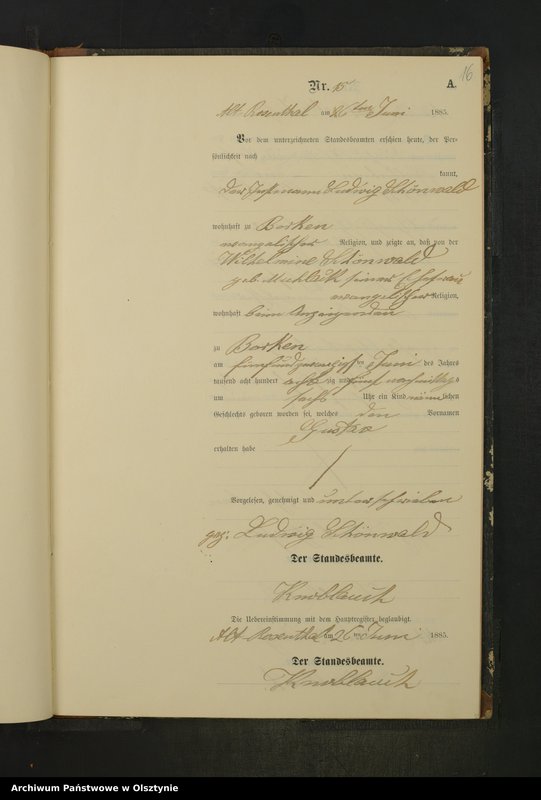 16
Nr. 15 A.
Alt Rosenthal am 26ten Juni 1885.
Vor dem unterzeichneten Standesbeamten erschien heute, der Per-
sönlichkeit nach
kannt,
der Ludwig Schönwald
wohnhaft zu Borken
evangelischer Religion, und zeigte an, daß von der
Wilhelmine Schönwald
geb. seiner Ehefrau
evangelischer Religion,
wohnhaft beim Anzeigenden
zu Borken
am fünfundzwanzigsten Juni des Jahres
tausend acht hundert achtzig und fünf nachmittags
um sechs Uhr ein Kind männlichen
Geschlechts geboren worden sei, welches den Vornamen
Gustav
erhalten habe
Vorgelesen, genehmigt und unterschrieben
gez: Ludwig Schönwald
Der Standesbeamte.
Knoblauch
Die Uebereinstimmung mit dem Hauptregister beglaubigt.
Alt Rosenthal am 26ten Juni 1885.
Der Standesbeamte.
Knoblauch
Archiwum Państwowe w Olsztynie